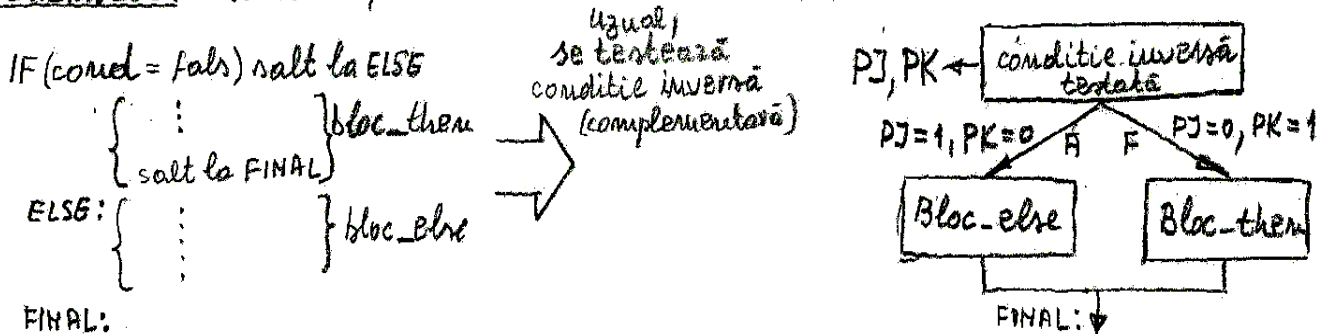 IF (cond = fals) salt la ELSE
{ ⋮ } bloc_then
salt la FINAL
ELSE: { ⋮ } bloc_else
FINAL:
uzual,
se testează
conditie inversă
(complementară)
PJ, PK ← conditie inversă
testată
PJ=1, PK=0 A F PJ=0, PK=1
Bloc_else Bloc_then
FINAL: